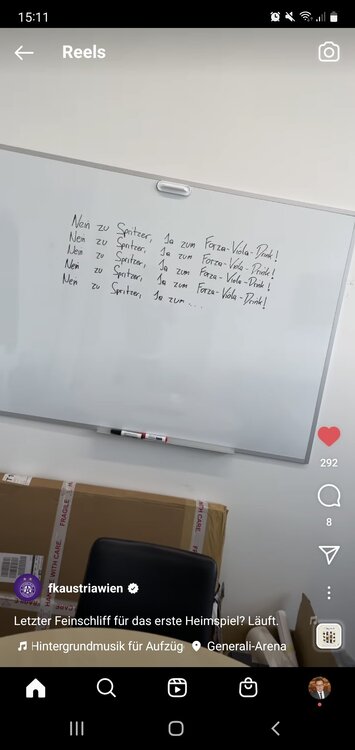 15:11
Reels
Nein zu Spritzer, Ja zum Forza-Viola-Drink!
Nein zu Spritzer, Ja zum Forza-Viola-Drink!
Nein zu Spritzer, Ja zum Forza-Viola-Drink!
Nein zu Spritzer, Ja zum Forza-Viola-Drink!
Nein zu Spritzer, Ja zum ...
292
8
FRAGILE
WITH CARE
WITH CARE
fkaustriawien
Letzter Feinschliff für das erste Heimspiel? Läuft.
Hintergrundmusik für Aufzüg
Generali-Arena